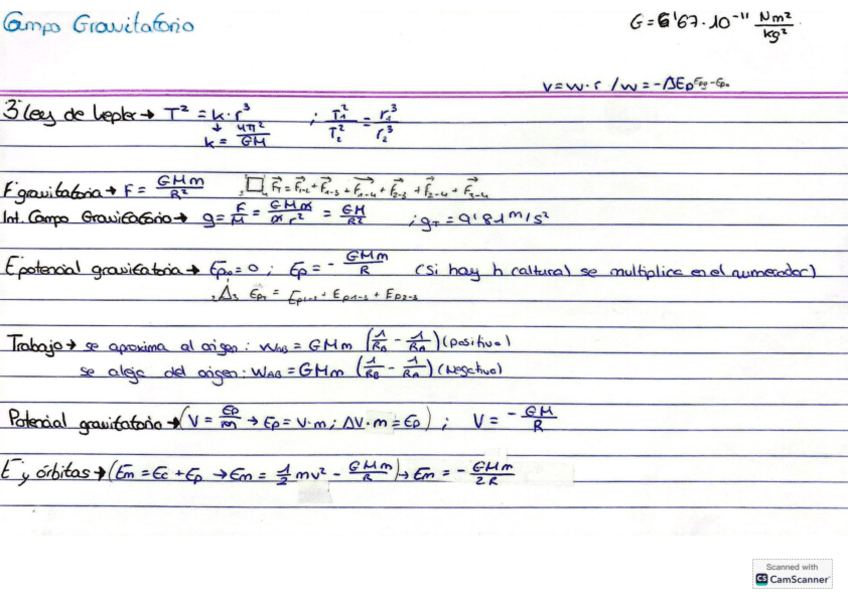 Campo Gravitatorio
G = 6'67·10⁻¹¹ Nm²/kg²
v = w·r / w = -ΔEp
3ª Ley de Kepler → T² = k·r³ ; T₁²/T₂² = r₁³/r₂³
k = 4π²/GM
F gravitatoria → F = GMm/R²
Int. Campo Gravitatorio → g = F/M = GMm/m r² = GM/R² ; g_T = 9'81 m/s²
E potencial gravitatoria → Ep∞ = 0 ; Ep = - GMm/R (si hay h (altura) se multiplica en el numerador)
Ep_T = Ep₁₋₂ + Ep₁₋₃ + Ep₂₋₃
Trabajo → se aproxima al origen : W_AB = GMm (1/R_B - 1/R_A) (positivo)
se aleja del origen : W_AB = GMm (1/R_B - 1/R_A) (Negativo)
Potencial gravitatorio → (V = Ep/m → Ep = V·m ; ΔV·m = Ep) ; V = - GM/R
E y órbitas → (Em = Ec + Ep → Em = 1/2 mv² - GMm/R) → Em = - GMm/2R
Scanned with
CS CamScanner